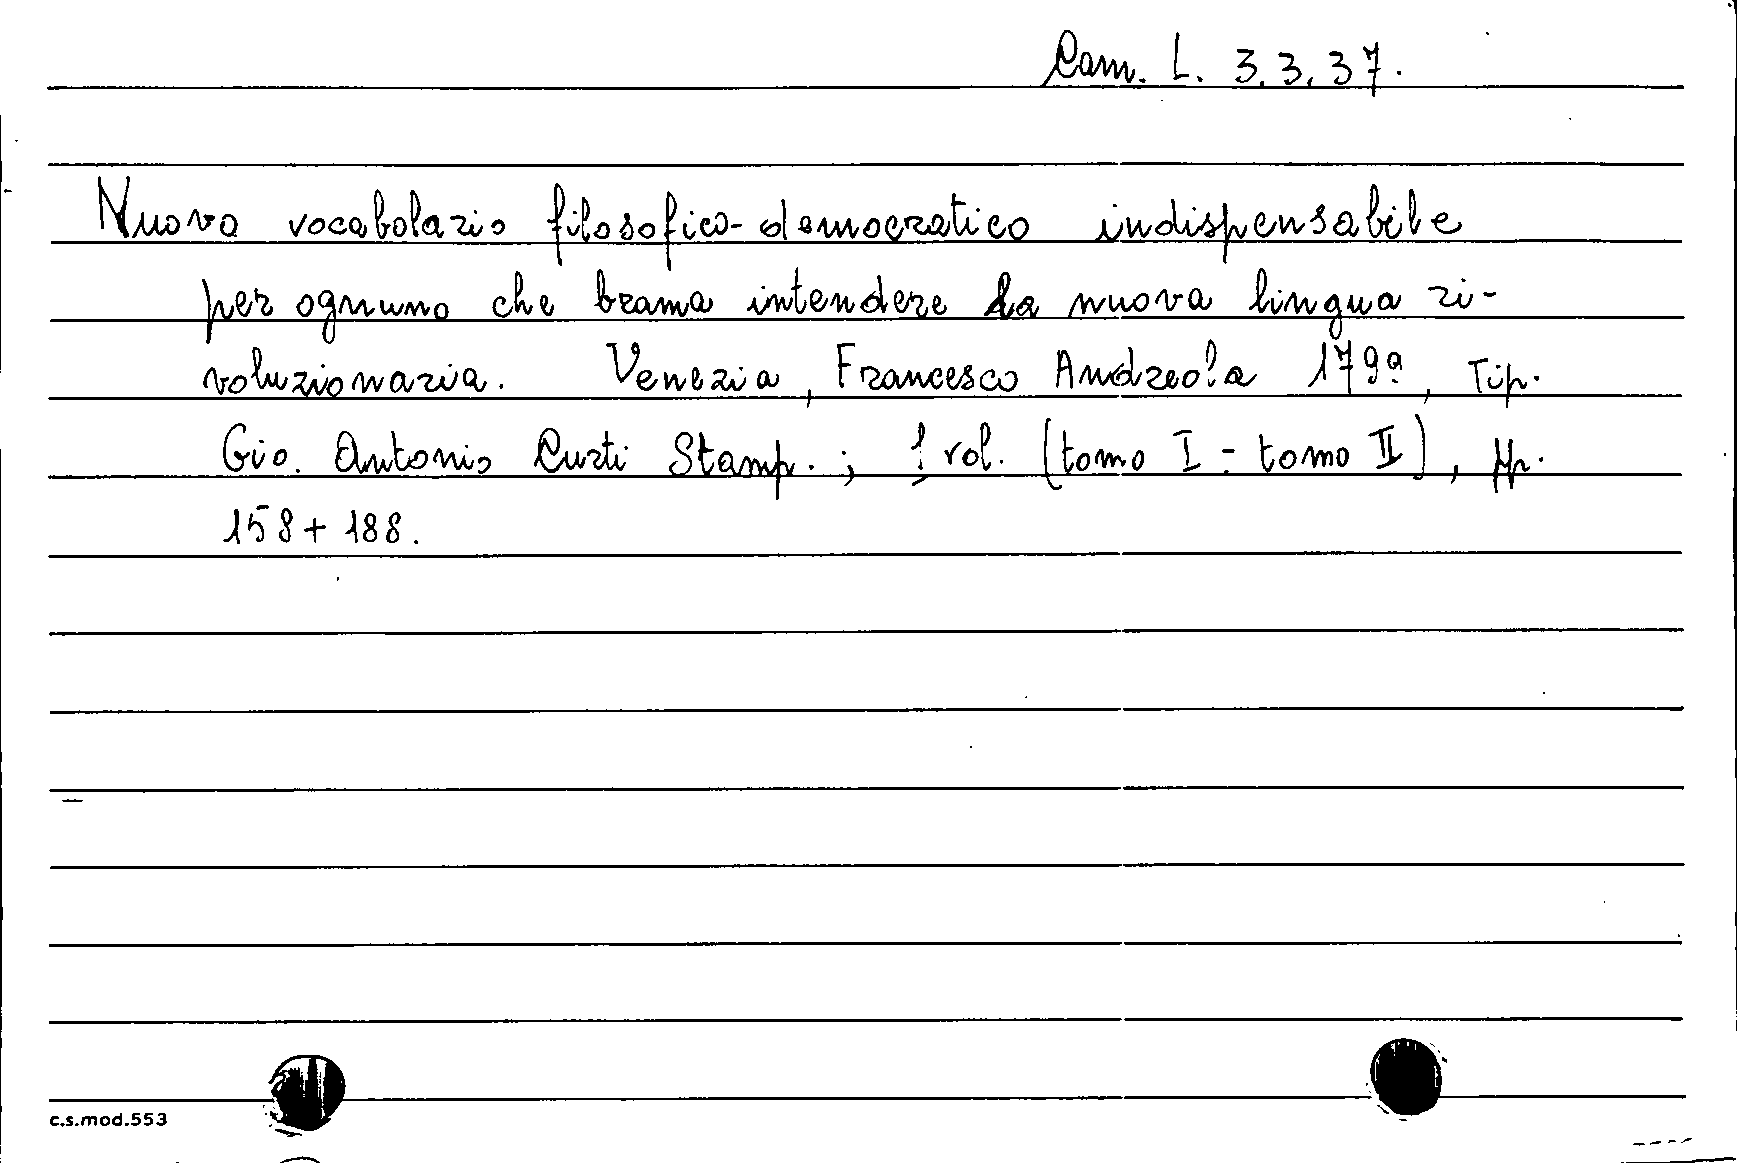 Cam. L. 3.3.37.
Nuovo vocabolario filosofico-democratico indispensabile
per ognuno che brama intendere la nuova lingua ri-
voluzionaria. Venezia, Francesco Andreola 1799, Tip.
Gio. Antonio Curti Stamp.; 1 vol. (tomo I - tomo II), pp.
158 + 188.
c.s.mod.553